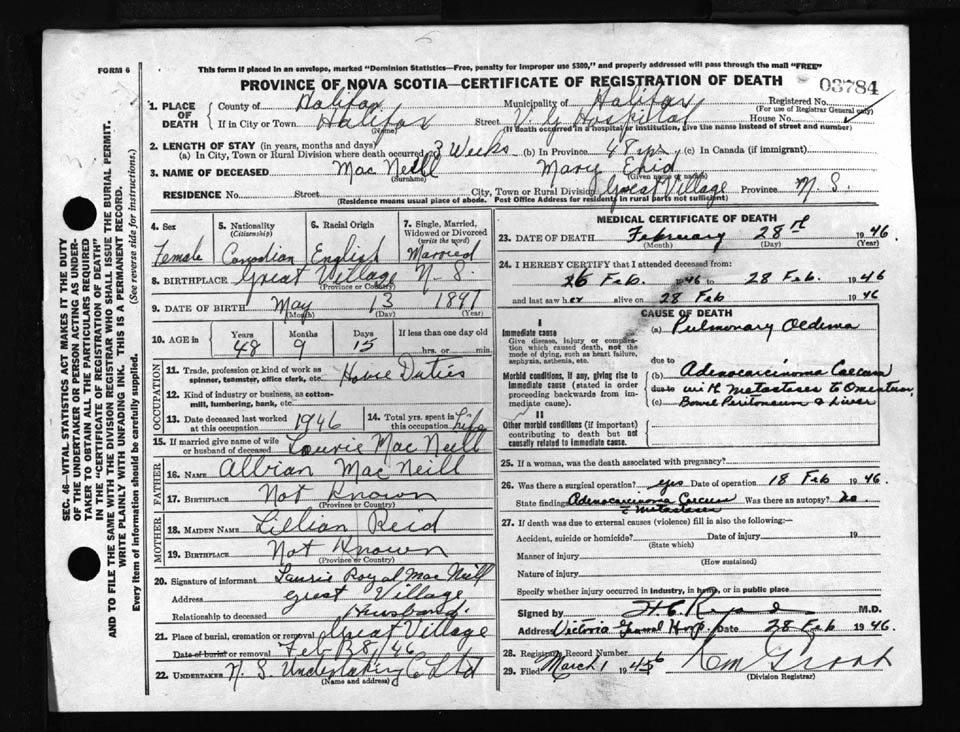 FORM 6
This form if placed in an envelope, marked "Dominion Statistics—Free, penalty for improper use $300," and properly addressed will pass through the mail "FREE"
PROVINCE OF NOVA SCOTIA—CERTIFICATE OF REGISTRATION OF DEATH
03784
1. PLACE OF DEATH
County of Halifax Municipality of Halifax Registered No.
(For use of Registrar General only)
If in City or Town Halifax Street V. G. Hospital House No.
(Name) (If death occurred in a hospital or institution, give the name instead of street and number)
2. LENGTH OF STAY (in years, months and days)
(a) In City, Town or Rural Division where death occurred 3 Weeks (b) In Province 48 yrs. (c) In Canada (if immigrant)
3. NAME OF DECEASED Mac Neill Mary Enid
(Surname) (Given name or names)
RESIDENCE No. Street City, Town or Rural Division Great Village Province N. S.
(Residence means usual place of abode. Post Office Address for residents in rural parts not sufficient)
4. Sex Female
5. Nationality (Citizenship) Canadian
6. Racial Origin English
7. Single, Married, Widowed or Divorced (write the word) Married
8. BIRTHPLACE Great Village N. S.
(Province or Country)
9. DATE OF BIRTH May 13 1897
(Month) (Day) (Year)
10. AGE Years 48 Months 9 Days 15 If less than one day old hrs. or min.
OCCUPATION
11. Trade, profession or kind of work as spinner, teamster, office clerk, etc. House Duties
12. Kind of industry or business, as cotton-mill, lumbering, bank, etc.
13. Date deceased last worked at this occupation 1946
14. Total yrs. spent in this occupation Life
15. If married give name of wife or husband of deceased Lourie Mac Neill
FATHER
16. NAME Albian Mac Neill
17. BIRTHPLACE Not Known
(Province or Country)
MOTHER
18. MAIDEN NAME Lillian Reid
19. BIRTHPLACE Not Known
(Province or Country)
20. Signature of informant Laurie Royal Mac Neill
Address Great Village
Relationship to deceased Husband.
21. Place of burial, cremation or removal Great Village
Date of burial or removal Feb 28/46
22. UNDERTAKER N. S. Undertaking Co Ltd
(Name and address)
MEDICAL CERTIFICATE OF DEATH
23. DATE OF DEATH February 28th 1946.
(Month) (Day) (Year)
24. I HEREBY CERTIFY that I attended deceased from:
26 Feb. 1946 to 28 Feb. 1946
and last saw her alive on 28 Feb 1946
CAUSE OF DEATH
I
Immediate cause
Give disease, injury or complication which caused death, not the mode of dying, such as heart failure, asphyxia, asthenia, etc.
(a) Pulmonary Oedema
due to
Morbid conditions, if any, giving rise to immediate cause (stated in order proceeding backwards from immediate cause).
(b) Adenocarcinoma Caecum
due to with metastases to Omentum,
(c) Bowel Peritoneum & Liver
II
Other morbid conditions (if important) contributing to death but not causally related to immediate cause.
25. If a woman, was the death associated with pregnancy?
26. Was there a surgical operation? yes Date of operation 18 Feb 1946.
State finding Adenocarcinoma Caecum Was there an autopsy? no
c metastases
27. If death was due to external causes (violence) fill in also the following:—
Accident, suicide or homicide? Date of injury 19
(State which)
Manner of injury
(How sustained)
Nature of injury
Specify whether injury occurred in industry, in home, or in public place
Signed by H. C. M.D.
Address Victoria General Hosp. Date 28 Feb 1946.
28. Registrar's Record Number
29. Filed March 1 1946
(Division Registrar)
SEC. 46—VITAL STATISTICS ACT MAKES IT THE DUTY OF THE UNDERTAKER OR PERSON ACTING AS UNDERTAKER TO OBTAIN ALL THE PARTICULARS REQUIRED IN THE "CERTIFICATE OF REGISTRATION OF DEATH" AND TO FILE THE SAME WITH THE DIVISION REGISTRAR WHO SHALL ISSUE THE BURIAL PERMIT.
WRITE PLAINLY WITH UNFADING INK. THIS IS A PERMANENT RECORD.
Every item of information should be carefully supplied. (See reverse side for instructions.)